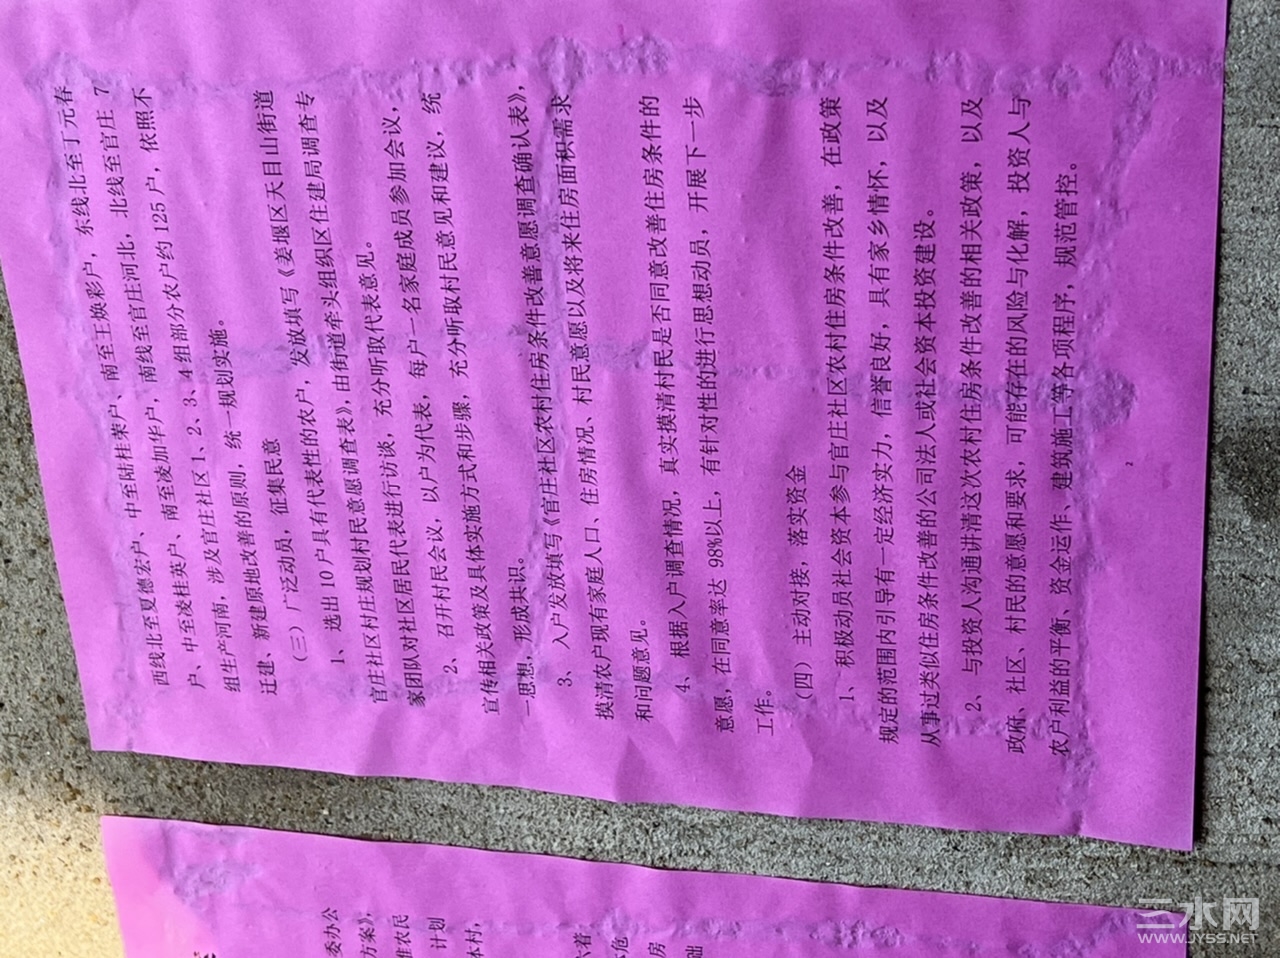 西线北至夏德宏户、中至陆桂荣户、南至王焕彩户，东线北至丁元春
户、中至凌桂英户、南至凌加华户，南线至官庄河北，北线至官庄 7
组生产河南，涉及官庄社区 1、2、3、4 组部分农户约 125 户，依照不
迁建、新建原地改善的原则，统一规划实施。
（三）广泛动员，征集民意
1、选出 10 户具有代表性的农户，发放填写《姜堰区天目山街道
官庄社区村庄规划村民意愿调查表》，由街道牵头组织区住建局调查专
家团队对社区居民代表进行访谈，充分听取代表意见。
2、召开村民会议，以户为代表，每户一名家庭成员参加会议，
宣传相关政策及具体实施方式和步骤，充分听取村民意见和建议，统
一思想，形成共识。
3、入户发放填写《官庄社区农村住房条件改善意愿调查确认表》，
摸清农户现有家庭人口、住房情况、村民意愿以及将来住房面积需求
和问题意见。
4、根据入户调查情况，真实摸清村民是否同意改善住房条件的
意愿，在同意率达 98%以上，有针对性的进行思想动员，开展下一步
工作。
（四）主动对接，落实资金
1、积极动员社会资本参与官庄社区农村住房条件改善，在政策
规定的范围内引导有一定经济实力，信誉良好，具有家乡情怀，以及
从事过类似住房条件改善的公司法人或社会资本投资建设。
2、与投资人沟通讲清这次农村住房条件改善的相关政策，以及
政府、社区、村民的意愿和要求，可能存在的风险与化解，投资人与
农户利益的平衡、资金运作、建筑施工等各项程序，规范管控。
2
委办公
方案》，
农民
计划
本村，
着
危
房
础
三水网
WWW.JYSS.NET